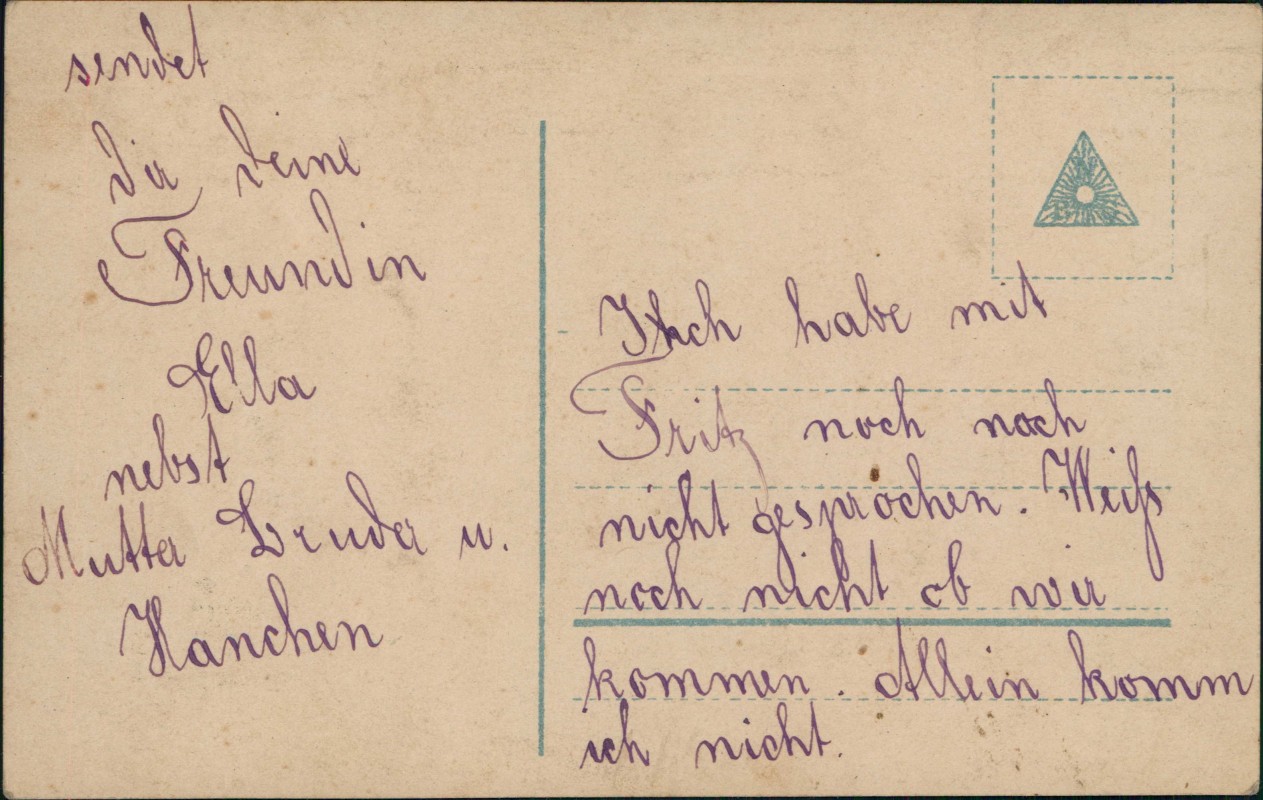 sendet
Dir Deine
Freundin
Ella
nebst
Mutter Bruder u.
Hanchen
Ich habe mit
Fritz noch noch
nicht gesprochen. Weiß
noch nicht ob wir
kommen. Allein komm
ich nicht.